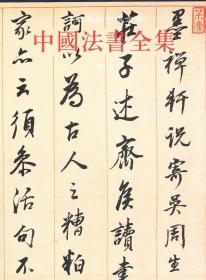 中國法書全集
墨禪軒説寄吳周生
莊子述齊侯讀書
訶以為古人之糟粕
家亦云須參活句不